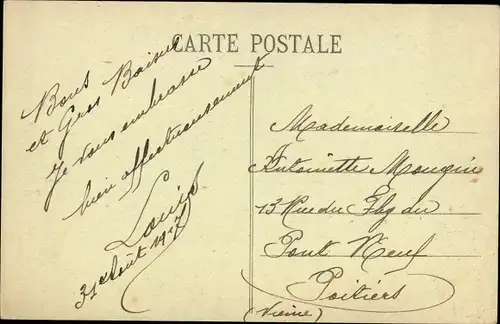 CARTE POSTALE
Bons
et Gros Baisers
Je vous embrasse
bien affectueusement
Louis
31 Août 19
Mademoiselle
Antoinette Mougin
13 Rue du Fbg du
Pont Neuf
Poitiers
(Vienne)